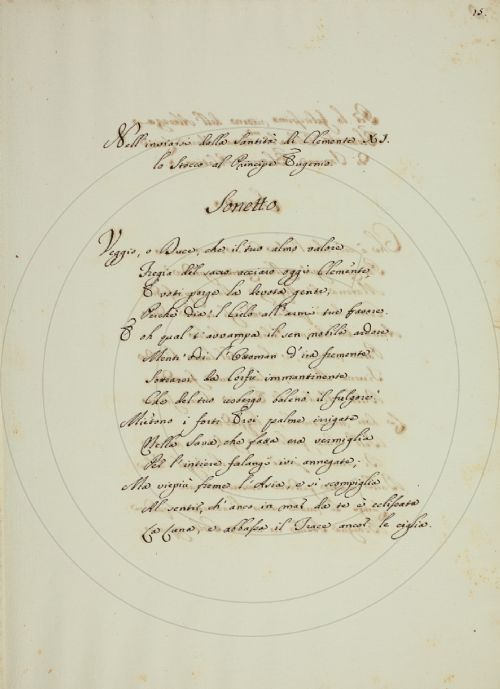 15.
Nell'inviarsi dalla Santità di Clemente XI.
lo Stocco al Principe Eugenio.
Sonetto.
Veggio, o Duce, che il tuo almo valore
Fregia del sacro acciaro oggi Clemente,
E voti porge la devota gente,
Perche dia 'l Cielo all'armi tue favore.
E oh qual t'avvampa il sen nobile ardore
Mentr'odi l'Ottoman d'ira fremente
Sottrarsi da Corfù immantinente
Che del tuo usbergo balenò il fulgore!
Mietono i forti Eroi palme irrigate
Nella Sava, che fassi era vermiglia
Per l'intiere falangi ivi annegate;
Ma viepiù freme l'Asia, e si scompiglia
Al sentir, ch'anco in mar da te è eclissata
La Luna, e abbassa il Trace ancor le ciglia.